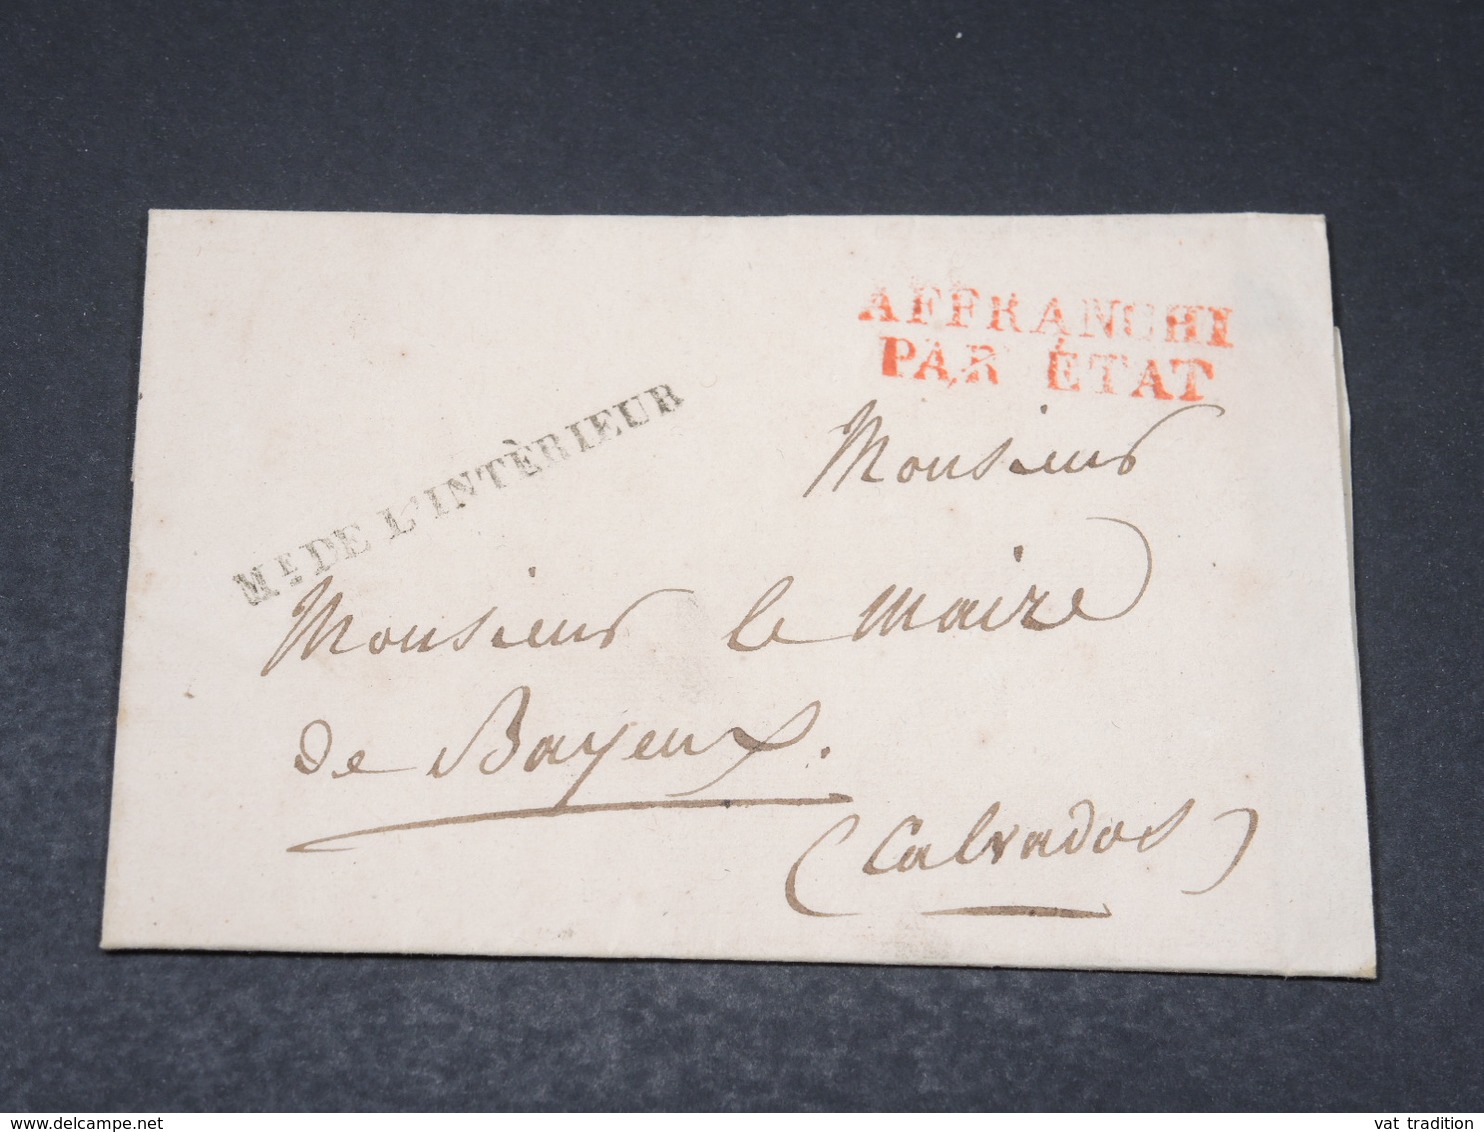 AFFRANCHI
PAR ÉTAT
Mr DE L'INTÈRIEUR
Monsieur
Monsieur le maire
de Bayeux.
(Calvados)
www.delcampe.net
vat tradition